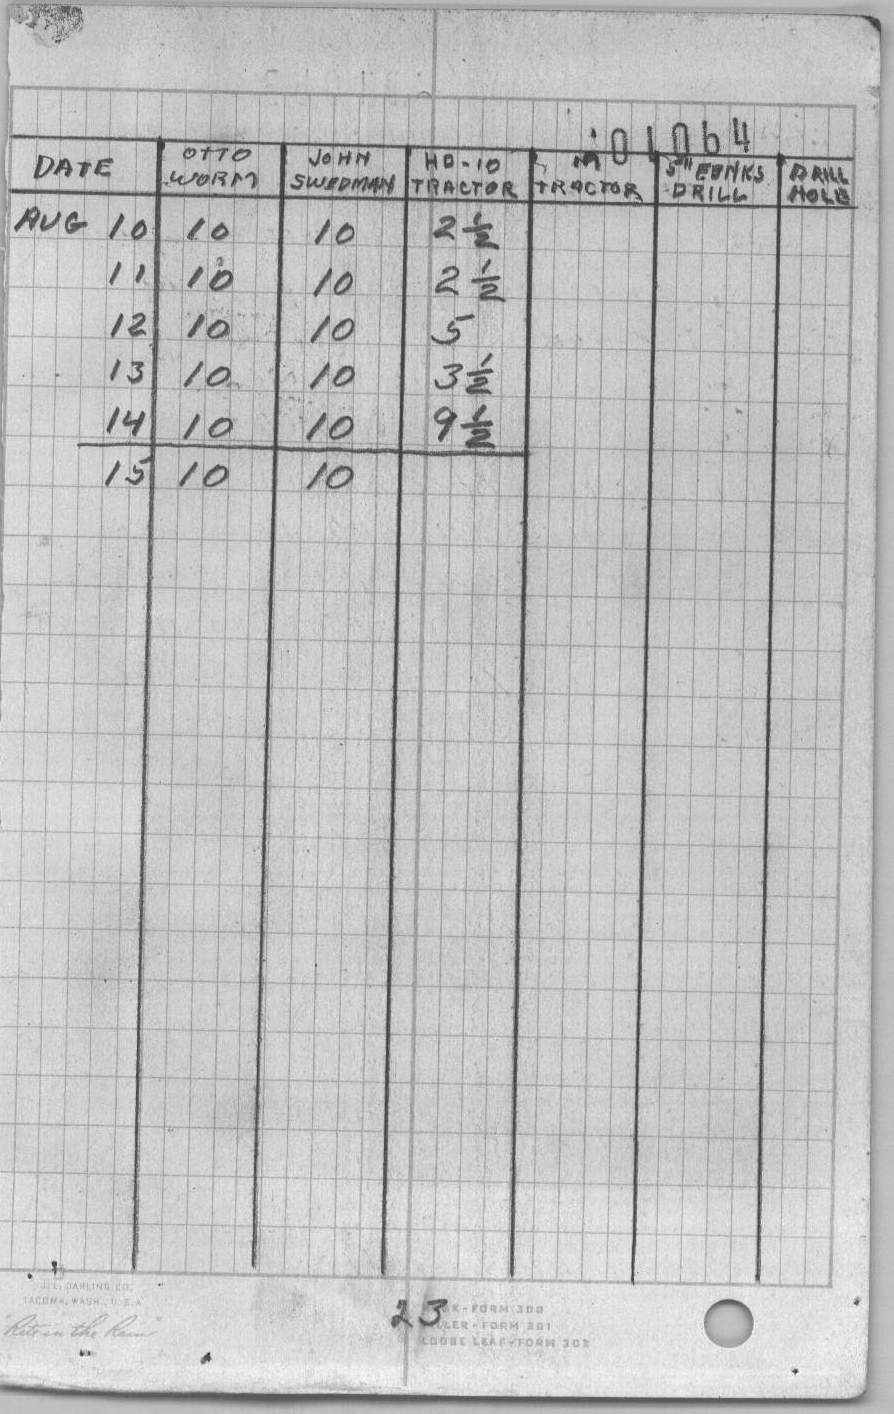 101064
DATE OTTO WORM JOHN SWEDMAN HD-10 TRACTOR M TRACTOR DRILL DRILL HOLE
AUG 10 10 10 2 1/2
11 10 10 2 1/2
12 10 10 5
13 10 10 3 1/2
14 10 10 9 1/2
15 10 10
J. L. DARLING CO.
TACOMA, WASH., U.S.A.
"Rite in the Rain"
23
-FORM 300
-FORM 301
LOOSE LEAF-FORM 302